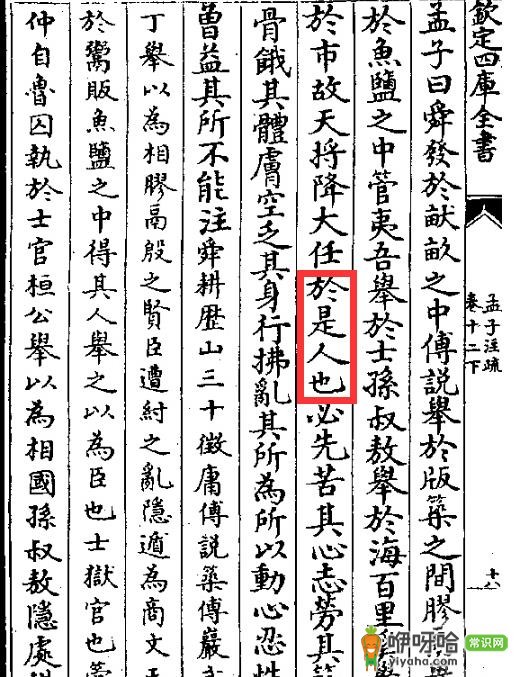 欽定四庫全書
孟子注疏
卷十二下
十八
孟子曰舜發於畎畝之中傅說舉於版築之間膠鬲舉
於魚鹽之中管夷吾舉於士孫叔敖舉於海百里奚舉
於市故天將降大任於是人也必先苦其心志勞其筋
骨餓其體膚空乏其身行拂亂其所為所以動心忍性
曾益其所不能注舜耕歷山三十徵庸傅說築傅巖武
丁舉以為相膠鬲殷之賢臣遭紂之亂隱遁為商文王
於鬻販魚鹽之中得其人舉之以為臣也士獄官也管
仲自魯囚執於士官桓公舉以為相國孫叔敖隱處
咿呀哈 常識网
yiyaha.com